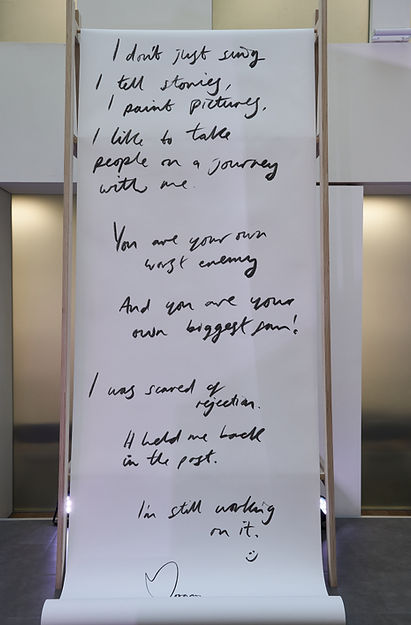 I don't just sing
I tell stories,
I paint pictures.
I like to take
people on a journey
with me.
You are your own
worst enemy
And you are your
own biggest fan!
I was scared of
rejection.
It held me back
in the past.
I'm still working
on it.